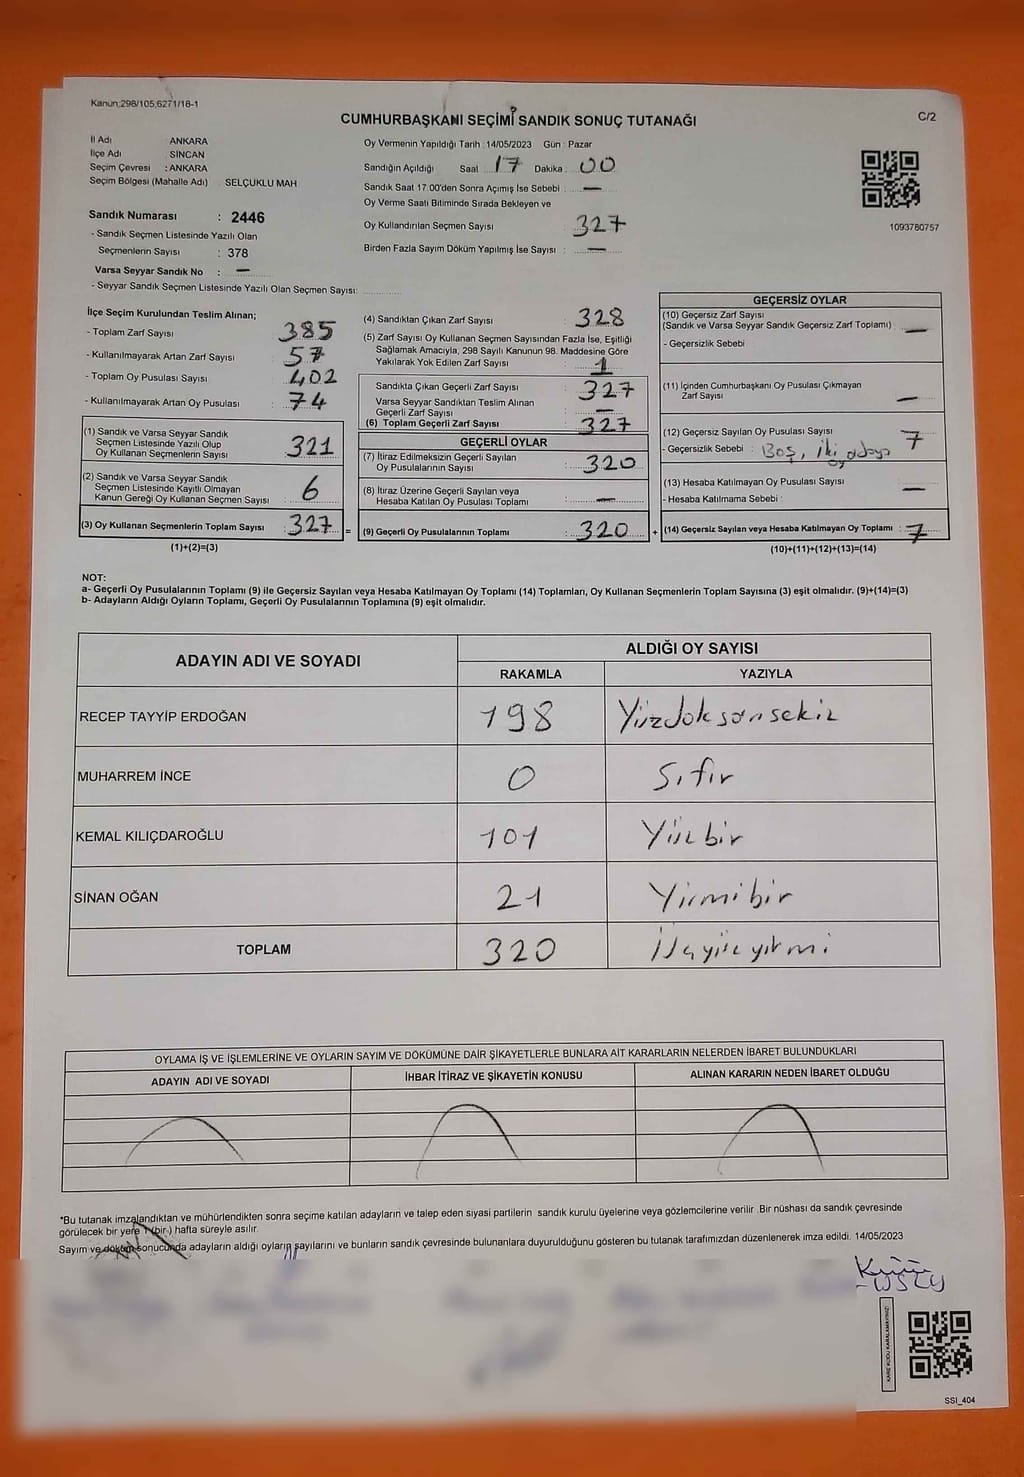 Kanun;298/105,6271/18-1
CUMHURBAŞKANI SEÇİMİ SANDIK SONUÇ TUTANAĞI
C/2
İl Adı ANKARA
İlçe Adı SİNCAN
Seçim Çevresi : ANKARA
Seçim Bölgesi (Mahalle Adı) SELÇUKLU MAH
Sandık Numarası : 2446
- Sandık Seçmen Listesinde Yazılı Olan
Seçmenlerin Sayısı : 378
Varsa Seyyar Sandık No : —
- Seyyar Sandık Seçmen Listesinde Yazılı Olan Seçmen Sayısı:
Oy Vermenin Yapıldığı Tarih : 14/05/2023 Gün : Pazar
Sandığın Açıldığı Saat 17 Dakika 00
Sandık Saat 17.00'den Sonra Açımış İse Sebebi : —
Oy Verme Saati Bitiminde Sırada Bekleyen ve
Oy Kullandırılan Seçmen Sayısı : 327
Birden Fazla Sayım Döküm Yapılmış İse Sayısı : —
1093780757
İlçe Seçim Kurulundan Teslim Alınan;
- Toplam Zarf Sayısı 385
- Kullanılmayarak Artan Zarf Sayısı 57
- Toplam Oy Pusulası Sayısı 402
- Kullanılmayarak Artan Oy Pusulası 74
(1) Sandık ve Varsa Seyyar Sandık
Seçmen Listesinde Yazılı Olup
Oy Kullanan Seçmenlerin Sayısı 321
(2) Sandık ve Varsa Seyyar Sandık
Seçmen Listesinde Kayıtlı Olmayan
Kanun Gereği Oy Kullanan Seçmen Sayısı 6
(3) Oy Kullanan Seçmenlerin Toplam Sayısı : 327 =
(1)+(2)=(3)
(4) Sandıktan Çıkan Zarf Sayısı : 328
(5) Zarf Sayısı Oy Kullanan Seçmen Sayısından Fazla İse, Eşitliği
Sağlamak Amacıyla, 298 Sayılı Kanunun 98. Maddesine Göre
Yakılarak Yok Edilen Zarf Sayısı : 1
Sandıkta Çıkan Geçerli Zarf Sayısı : 327
Varsa Seyyar Sandıktan Teslim Alınan
Geçerli Zarf Sayısı : —
(6) Toplam Geçerli Zarf Sayısı : 327
GEÇERLİ OYLAR
(7) İtiraz Edilmeksizin Geçerli Sayılan
Oy Pusulalarının Sayısı : 320
(8) İtiraz Üzerine Geçerli Sayılan veya
Hesaba Katılan Oy Pusulası Toplamı : —
(9) Geçerli Oy Pusulalarının Toplamı : 320 +
GEÇERSİZ OYLAR
(10) Geçersiz Zarf Sayısı
(Sandık ve Varsa Seyyar Sandık Geçersiz Zarf Toplamı) —
- Geçersizlik Sebebi
(11) İçinden Cumhurbaşkanı Oy Pusulası Çıkmayan
Zarf Sayısı —
(12) Geçersiz Sayılan Oy Pusulası Sayısı 7
- Geçersizlik Sebebi : Boş, iki adaya
oy
(13) Hesaba Katılmayan Oy Pusulası Sayısı —
- Hesaba Katılmama Sebebi
(14) Geçersiz Sayılan veya Hesaba Katılmayan Oy Toplamı : 7
(10)+(11)+(12)+(13)=(14)
NOT:
a- Geçerli Oy Pusulalarının Toplamı (9) ile Geçersiz Sayılan veya Hesaba Katılmayan Oy Toplamı (14) Toplamları, Oy Kullanan Seçmenlerin Toplam Sayısına (3) eşit olmalıdır. (9)+(14)=(3)
b- Adayların Aldığı Oyların Toplamı, Geçerli Oy Pusulalarının Toplamına (9) eşit olmalıdır.
ADAYIN ADI VE SOYADI
ALDIĞI OY SAYISI
RAKAMLA YAZIYLA
RECEP TAYYİP ERDOĞAN 198 Yüzdoksansekiz
MUHARREM İNCE 0 Sıfır
KEMAL KILIÇDAROĞLU 101 Yüzbir
SİNAN OĞAN 21 Yirmibir
TOPLAM 320 Üçyüzyirmi
OYLAMA İŞ VE İŞLEMLERİNE VE OYLARIN SAYIM VE DÖKÜMÜNE DAİR ŞİKAYETLERLE BUNLARA AİT KARARLARIN NELERDEN İBARET BULUNDUKLARI
ADAYIN ADI VE SOYADI İHBAR İTİRAZ VE ŞİKAYETİN KONUSU ALINAN KARARIN NEDEN İBARET OLDUĞU
*Bu tutanak imzalandıktan ve mühürlendikten sonra seçime katılan adayların ve talep eden siyasi partilerin sandık kurulu üyelerine veya gözlemcilerine verilir .Bir nüshası da sandık çevresinde
görülecek bir yere 1(bir-) hafta süreyle asılır.
Sayım ve döküm sonucunda adayların aldığı oyların sayılarını ve bunların sandık çevresinde bulunanlara duyurulduğunu gösteren bu tutanak tarafımızdan düzenlenerek imza edildi. 14/05/2023
KARE KODU KARALAMAYINIZ!
SSİ_404